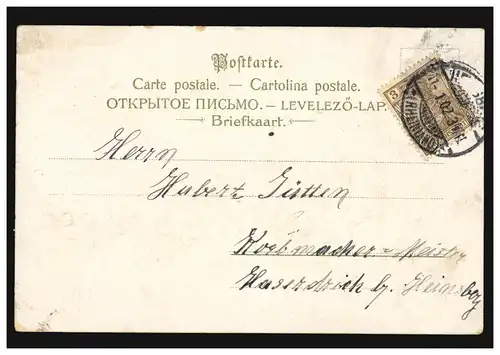 Postkarte.
Carte postale. — Cartolina postale.
ОТКРЫТОЕ ПИСЬМО. — LEVELEZŐ-LAP.
Briefkaart.
3
Herrn
Hubert Jütten
Korbmacher-Meister
b/ Heinsbg